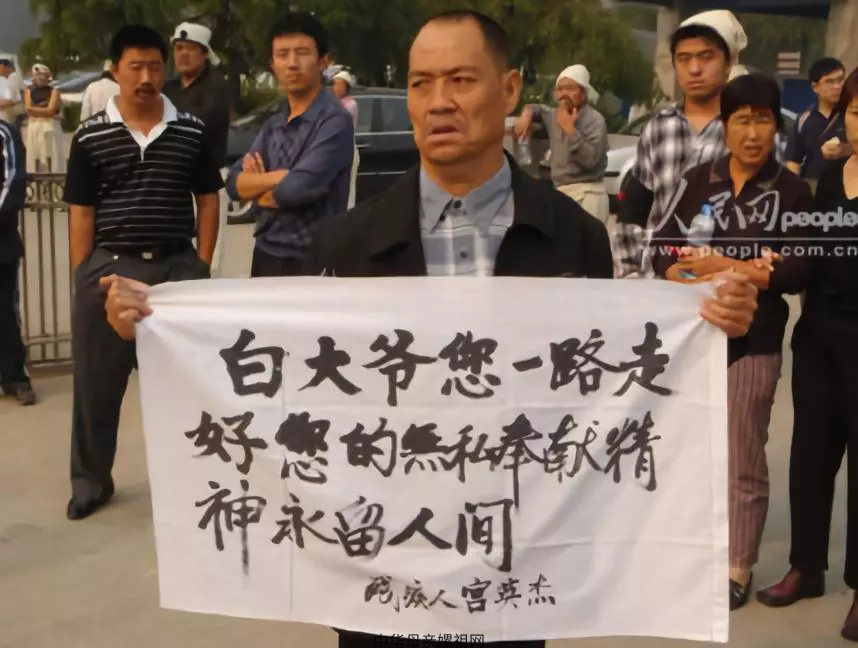 人民网people
www.people.com.cn
白大爷您一路走
好您的無私奉献精
神永留人间
残疾人宫英杰
中华母亲嫘祖网